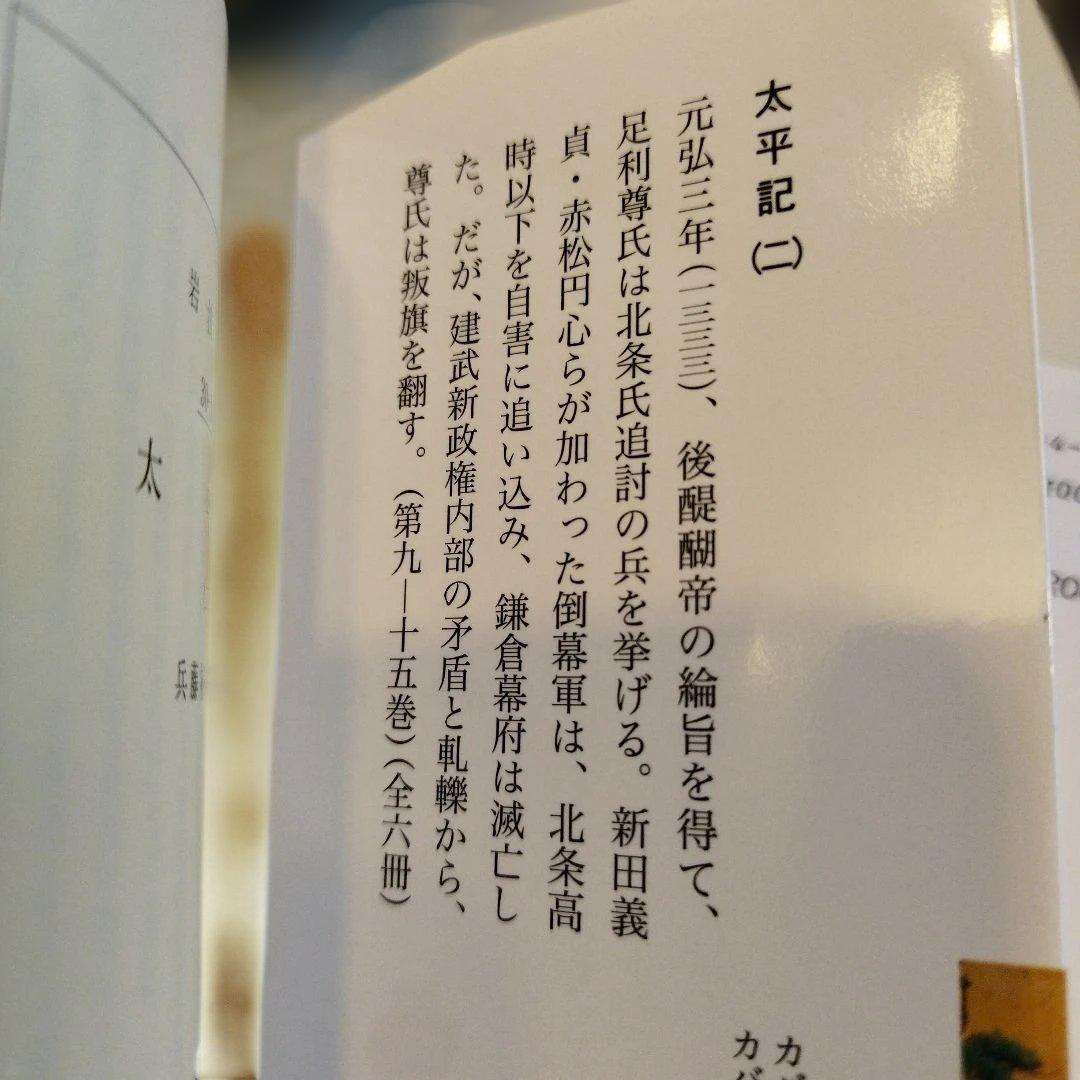 太平記(二)
元弘三年(一三三三)、後醍醐帝の綸旨を得て、
足利尊氏は北条氏追討の兵を挙げる。新田義
貞・赤松円心らが加わった倒幕軍は、北条高
時以下を自害に追い込み、鎌倉幕府は滅亡し
た。だが、建武新政権内部の矛盾と軋轢から、
尊氏は叛旗を翻す。(第九―十五巻)(全六冊)
岩
太
兵藤